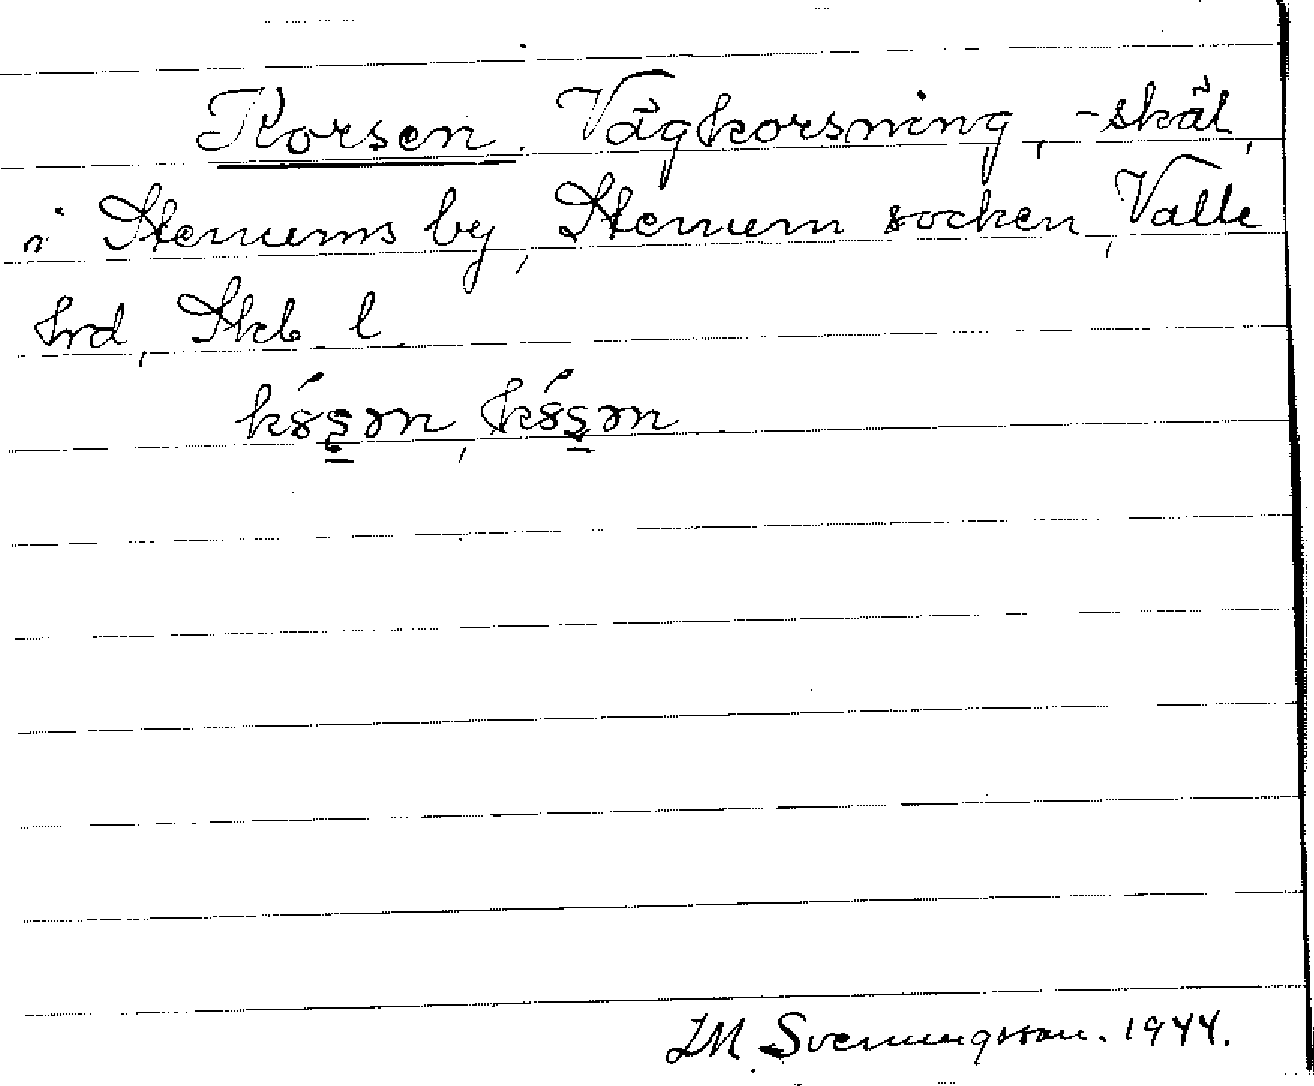 Korsen. Vägkorsning, -skäl,
i Stenums by, Stenum socken, Valle
hrd, Skb. l.
J.M. Svenungsson. 1944.